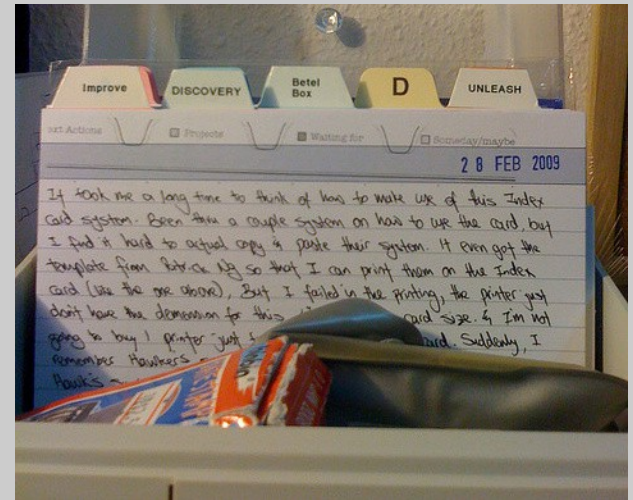 Improve
DISCOVERY
Betel
Box
D
UNLEASH
ext Actions
Projects
Waiting for
Someday/maybe
28 FEB 2009
It took me a long time to think of how to make use of this Index
card system. Been thru a couple system on how to use the card, but
I find it hard to actual copy & paste their system. It even got the
template from Patrick Ng so that I can print them on the Index
card (like the one above), But I failed in the printing, the printer just
don't have the demension for this card size. & I'm not
going to buy 1 printer just card. Suddenly, I
remember Hawkers
Hawk's